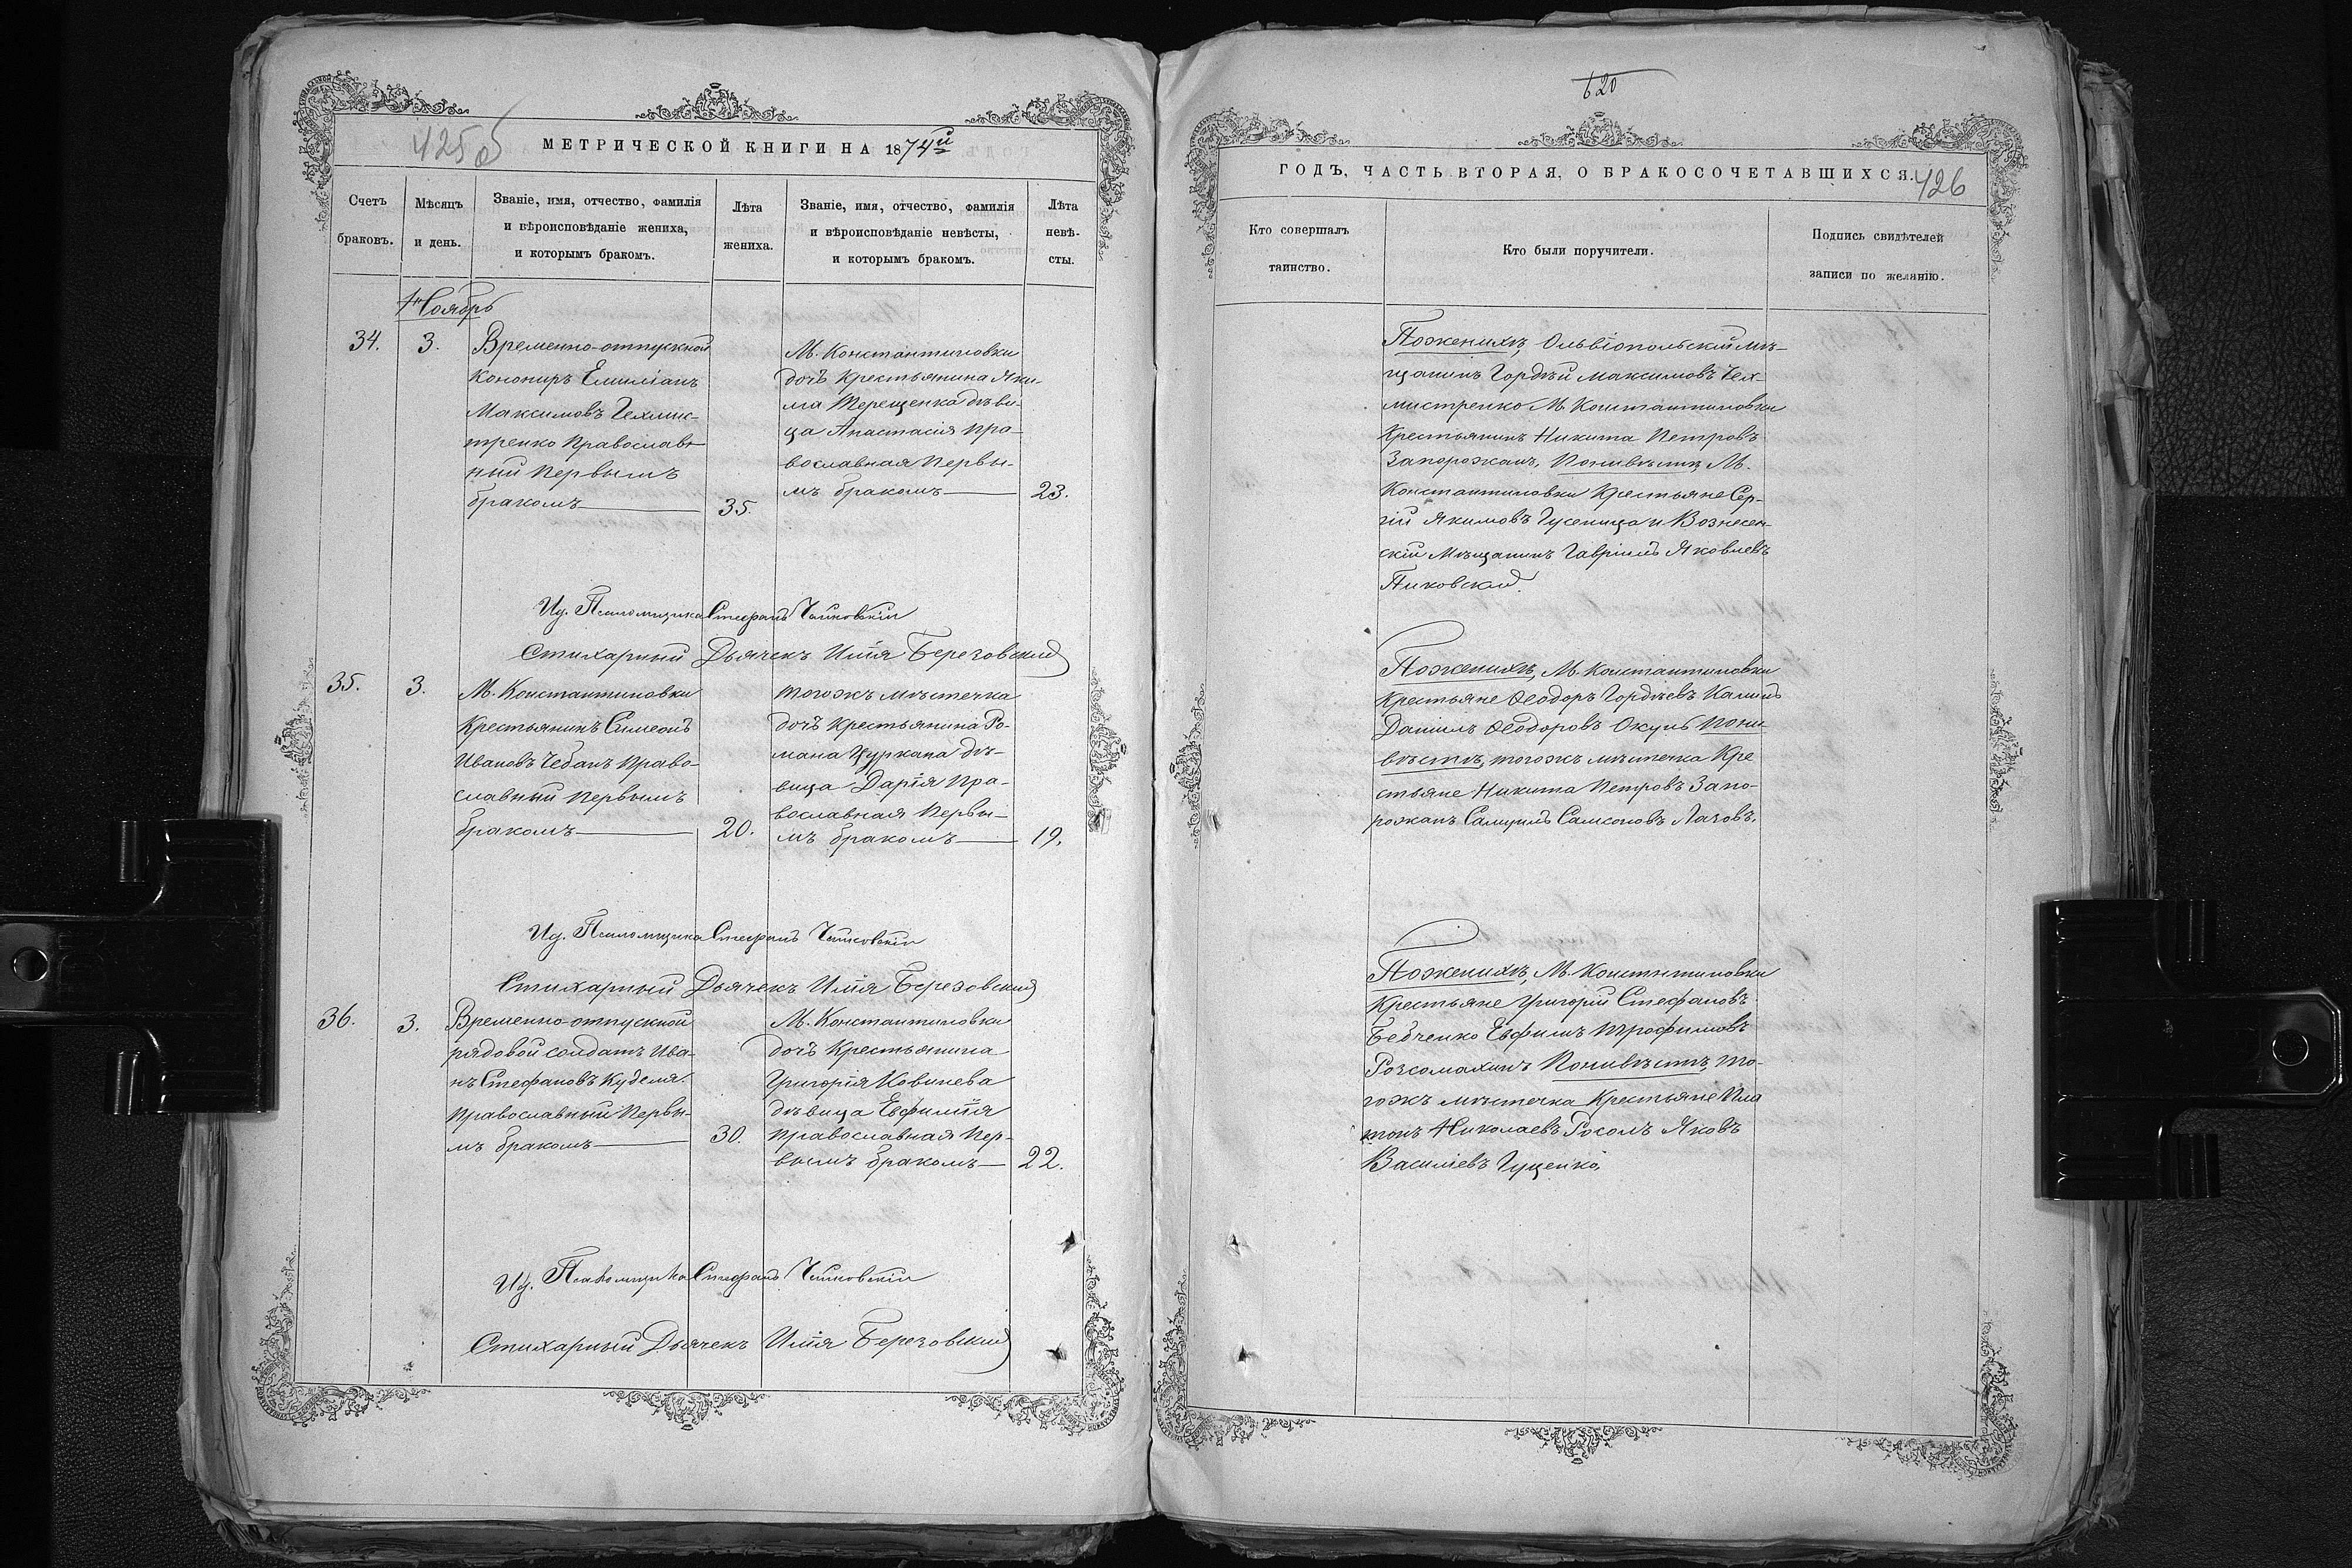 425 об
МЕТРИЧЕСКОЙ КНИГИ НА 1874й
Счетъ
браковъ.
Мѣсяцъ
и день.
Званіе, имя, отчество, фамилія
и вѣроисповѣданіе жениха,
и которымъ бракомъ.
Лѣта
жениха.
Званіе, имя, отчество, фамилія
и вѣроисповѣданіе невѣсты,
и которымъ бракомъ.
Лѣта
невѣ-
сты.
Ноябрь
34.
3.
Временно-отпускной
Конониръ Емиліанъ
Максимовъ Чехмис-
тренко Православ-
ный Первымъ
бракомъ
35.
М. Константиновки
дочь Крестьянина Яки-
ма Терещенка дѣви-
ца Анастасія Пра-
вославная Первы-
мъ бракомъ
23.
И д. Псаломщика Стефанъ Чайковскій
Стихарный Дьячекъ Илія Березовскій
35.
3.
М. Константиновки
Крестьянинъ Симеонъ
Ивановъ Чебанъ Право-
славный Первымъ
бракомъ
20.
тогожъ мѣстечка
дочь Крестьянина Ро-
мана Цуркана дѣ-
вица Дарія Пра-
вославная Первы-
мъ бракомъ
19.
И д. Псаломщика Стефанъ Чайковскій
Стихарный Дьячекъ Илія Березовскій
36.
3.
Временно-отпускной
рядовой солдатъ Ива-
нъ Стефановъ Куделя
Православный Первы-
мъ бракомъ
30.
М. Константиновки
дочь Крестьянина
Григорія Ковинева
дѣвица Евфимія
Православная Пер-
вымъ бракомъ
22.
И д. Псаломщика Стефанъ Чайковскій
Стихарный Дьячекъ Илія Березовскій
620
ГОДЪ, ЧАСТЬ ВТОРАЯ, О БРАКОСОЧЕТАВШИХСЯ.
426
Кто совершалъ
таинство.
Кто были поручители.
Подпись свидѣтелей
записи по желанію.
Поженихѣ, Ольвіопольскій мѣ-
щанинъ Гордѣй Максимовъ Чех-
мистренко М. Константиновки
Крестьянинъ Никита Петровъ
Запорожанъ, Поневѣстѣ М.
Константиновки Крестьяне Сер-
гій Якимовъ Гусеница и Вознесен-
скій Мѣщанинъ Гавріилъ Яковлевъ
Пиковскій.
Поженихѣ, М. Константиновки
Крестьяне Ѳеодоръ Гордѣевъ Калинъ
Даніилъ Ѳеодоровъ Окуль Поне-
вѣстѣ, тогожъ мѣстечка Кре
стьяне Никита Петровъ Запо-
рожанъ Самуилъ Самсоновъ Лазовъ.
Поженихѣ, М. Константиновки
Крестьяне Григорій Стефановъ
Бебченко Евфимъ Трофимовъ
Розсомахинъ Поневѣстѣ то-
гожъ мѣстечка Крестьяне Пла
тонъ Николаевъ Росолъ Яковъ
Василіевъ Гуценко,